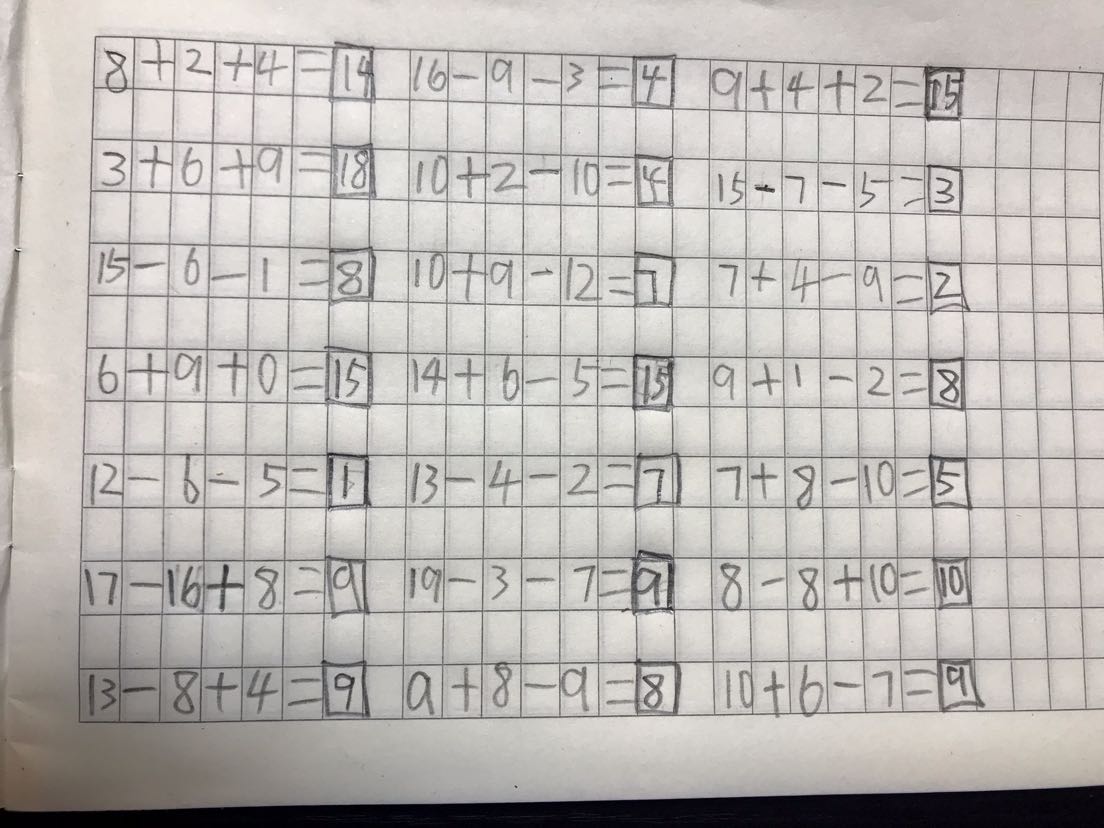 8+2+4=14 16-9-3=4 9+4+2=15
3+6+9=18 10+2-10=4 15-7-5=3
15-6-1=8 10+9-12=7 7+4-9=2
6+9+0=15 14+6-5=15 9+1-2=8
12-6-5=1 13-4-2=7 7+8-10=5
17-16+8=9 19-3-7=9 8-8+10=10
13-8+4=9 9+8-9=8 10+6-7=9